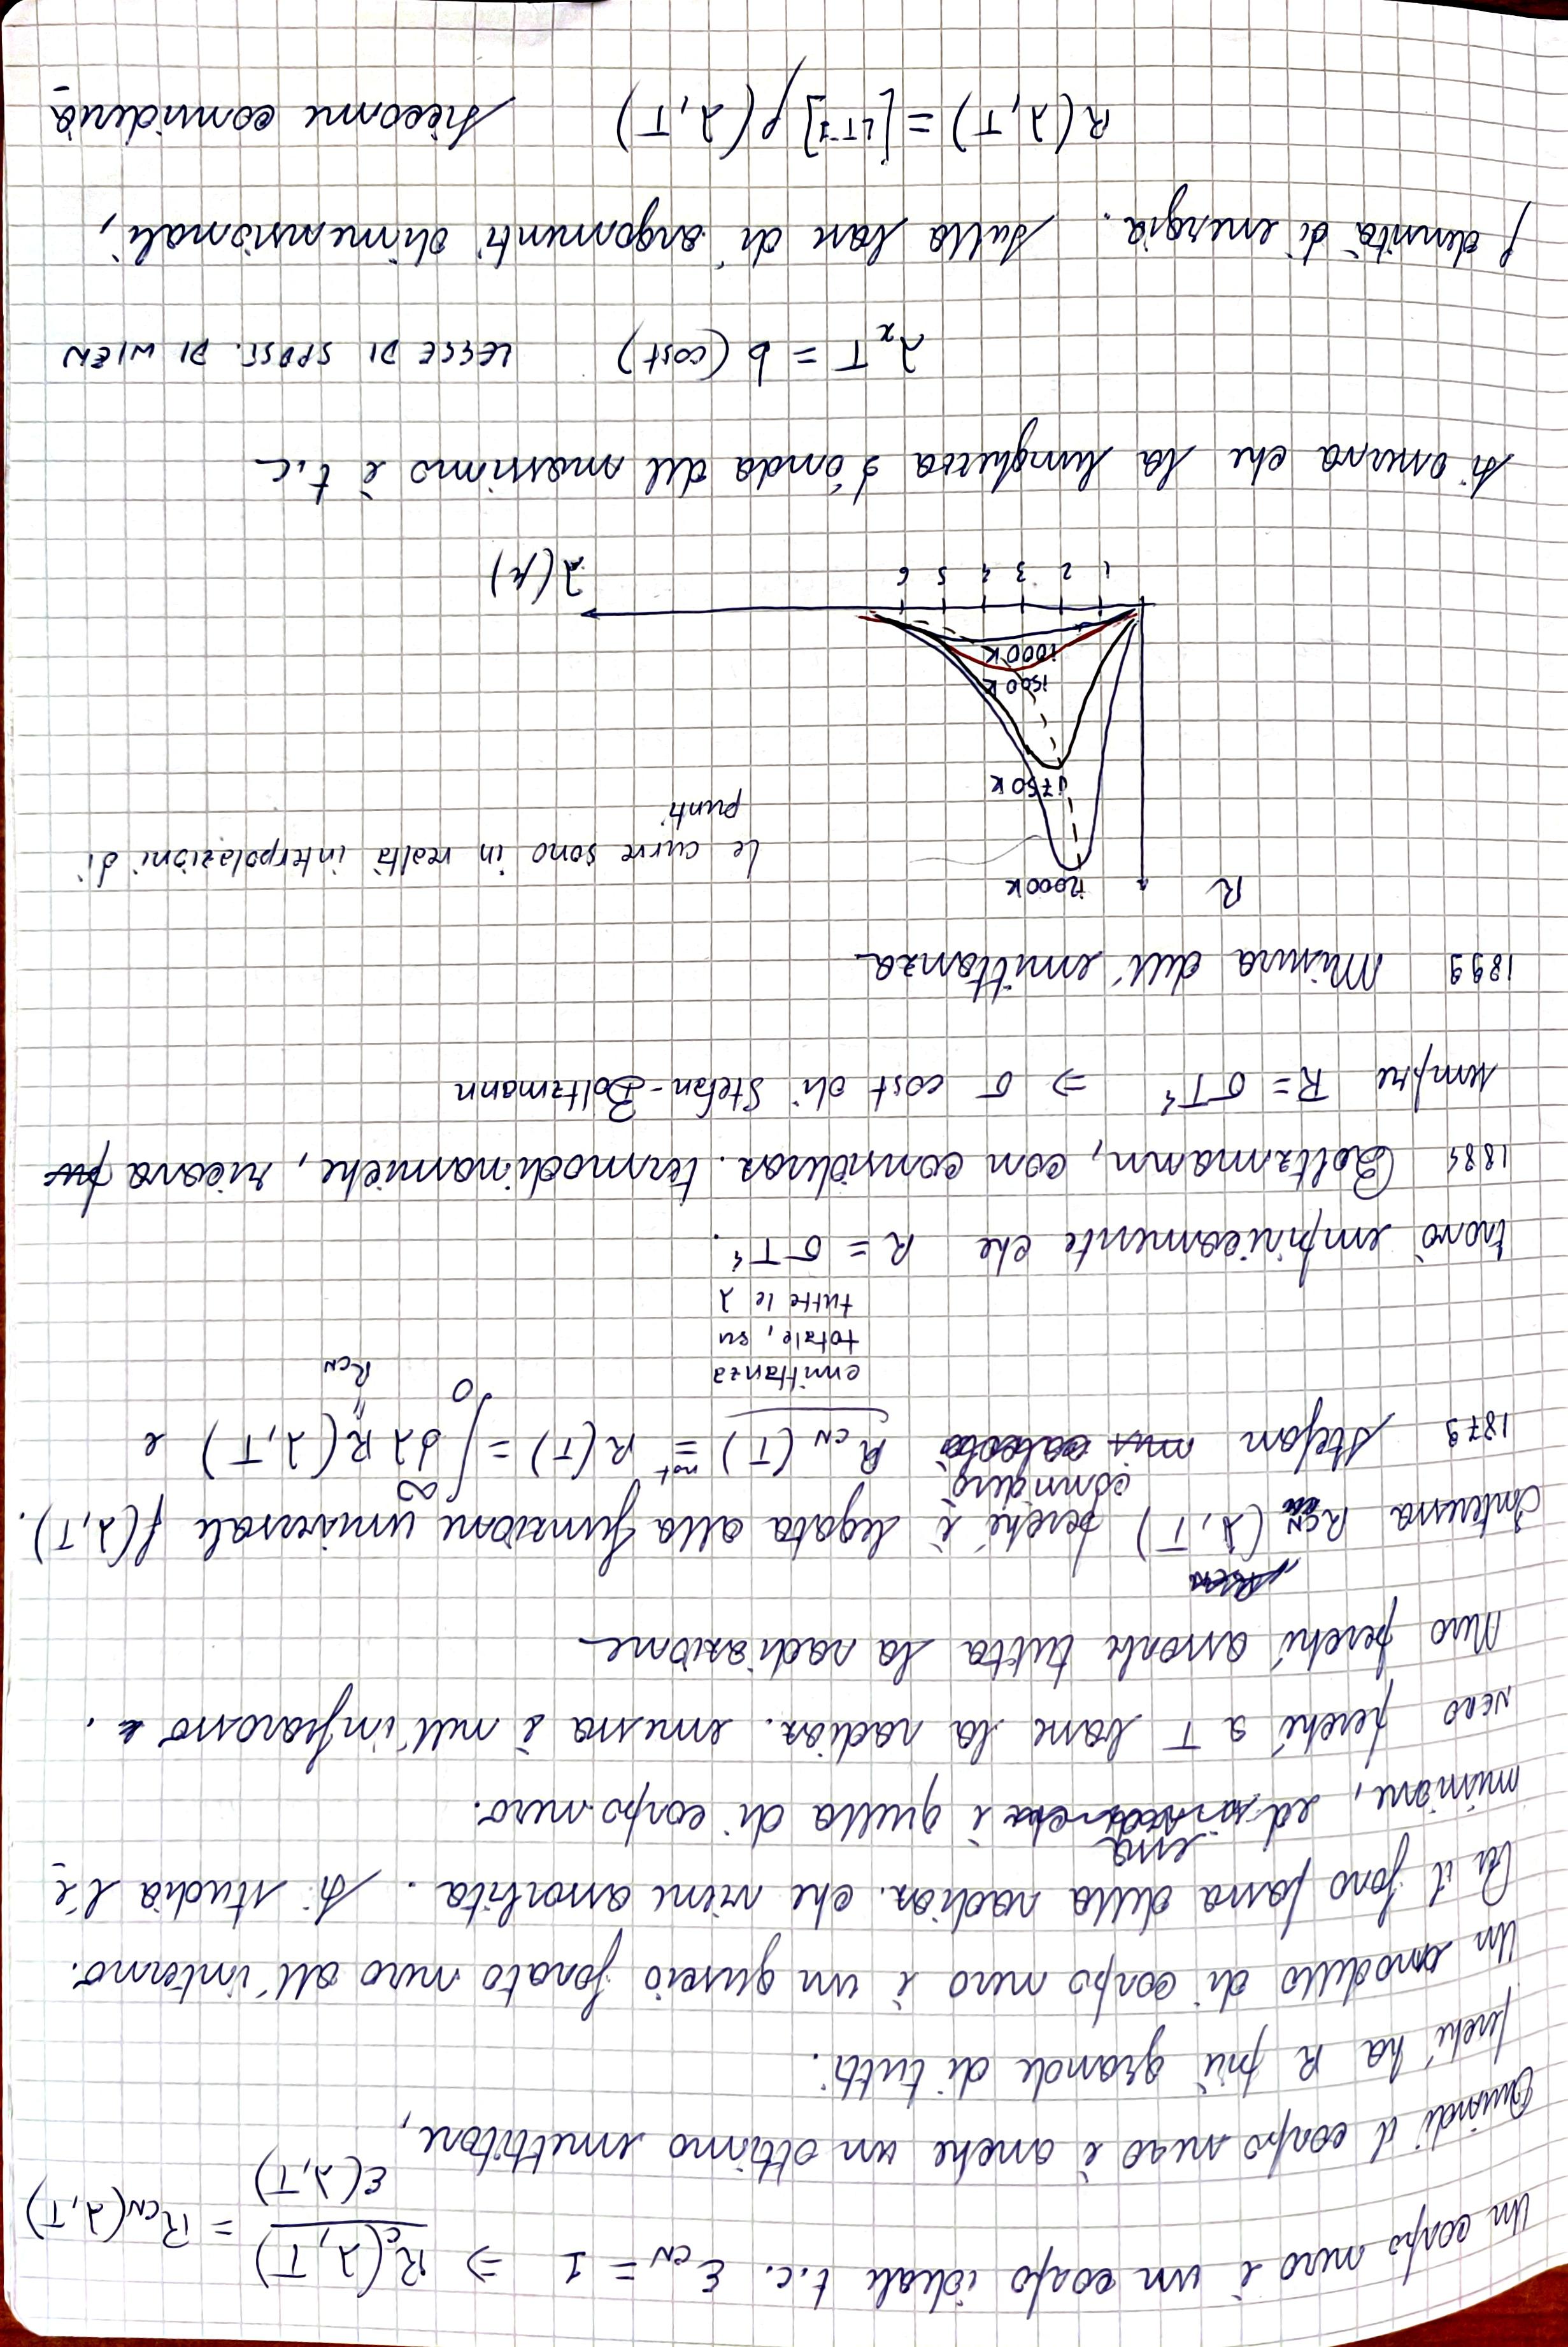 Un corpo nero è un corpo ideale t.c. ε_CN = 1 ⇒ R_c(λ,T) / ε(λ,T) = R_CN(λ,T)
Quindi il corpo nero è anche un ottimo emettitore,
perché ha R più grande di tutti.
Un modello di corpo nero è un guscio forato nero all'interno.
Per il foro passa della radiaz. che viene assorbita. Si studia l'e-
missione, ed essa è quella di corpo nero.
NERO perché a T basse la radiaz. emessa è nell'infrarosso.
Nero perché assorbe tutta la radiazione
Interessa R_CN(λ,T) perché è legata alla funzione universale f(λ,T).
1879 Stefan considerò R_CN(T) =_not R(T) = ∫_0^∞ dλ R(λ,T) e
R_CN
emittanza
totale, su
tutte le λ
trovò empiricamente che R = σT⁴.
1884 Boltzmann, con consideraz. termodinamiche, ricava
sempre R = σT⁴ ⇒ σ cost di Stefan-Boltzmann
1899 Misura dell'emittanza
R
2000K
Le curve sono in realtà interpolazioni di
punti
1750K
1500K
1000K
1 2 3 4 5 6
λ(μ)
Si osserva che la lunghezza d'onda del massimo è t.c.
λ_x T = b (cost) LEGGE DI SPOST. DI WIEN
ρ densità di energia. Sulla base di argomenti dimensionali,
R(λ,T) = [LT⁻¹] ρ(λ,T) siccome considera